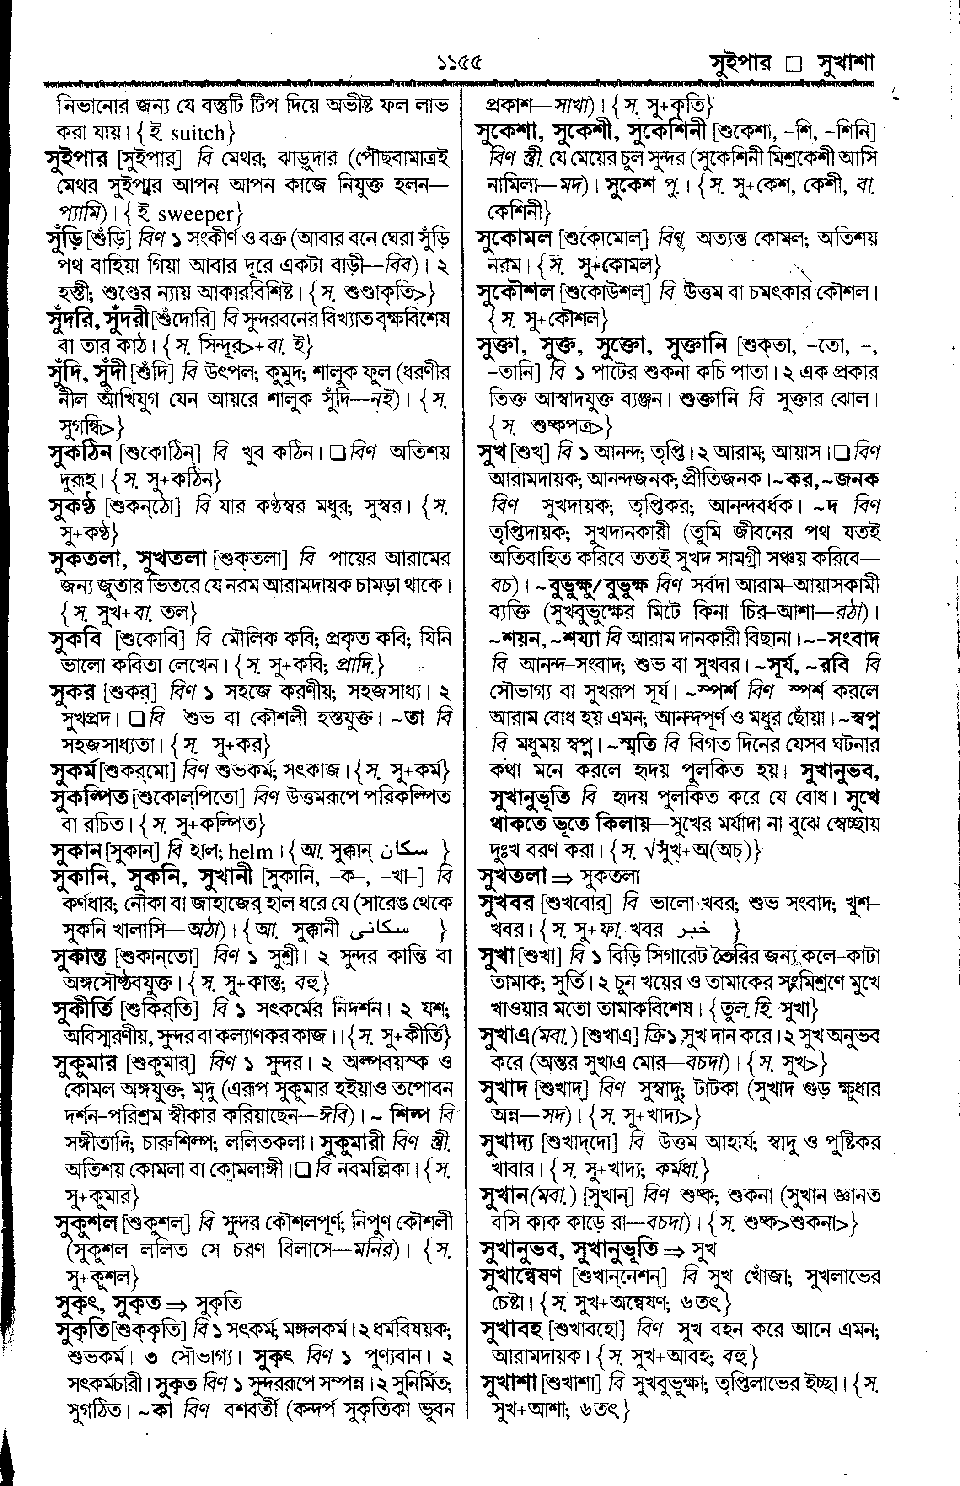 ১১৫৫
সুইপার □ সুখাশা
নিভানোর জন্য যে বস্তুটি টিপ দিয়ে অভীষ্ট ফল লাভ
করা যায়। { ই. suitch}
সুইপার [সুইপার্] বি মেথর; ঝাড়ুদার (পৌছবামাত্রই
মেথর সুইপার আপন আপন কাজে নিযুক্ত হলন—
প্যামি)। { ই. sweeper}
সুঁড়ি [শুঁড়ি] বিণ ১ সংকীর্ণ ও বক্র (আবার বনে ঘেরা সুঁড়ি
পথ বাহিয়া গিয়া আবার দূরে একটা বাড়ী—বিব)। ২
হস্তী; শুণ্ডের ন্যায় আকারবিশিষ্ট। {স. শুণ্ডাকৃতি>}
সুঁদরি, সুঁদরী [শুঁদোরি] বি সুন্দরবনের বিখ্যাত বৃক্ষবিশেষ
বা তার কাঠ। {স. সিন্দূর>+বা. ই}
সুঁদি, সুঁদী [শুঁদি] বি উৎপল; কুমুদ; শালুক ফুল (ধরণীর
নীল আঁখিযুগ যেন আয়রে শালুক সুঁদি—নই)। {স.
সুগন্ধি>}
সুকঠিন [শুকোঠিন্] বি খুব কঠিন। □ বিণ অতিশয়
দুরূহ। {স. সু+কঠিন}
সুকণ্ঠ [শুকন্‌ঠো] বি যার কণ্ঠস্বর মধুর; সুস্বর। {স.
সু+কণ্ঠ}
সুকতলা, সুখতলা [শুক্‌তলা] বি পায়ের আরামের
জন্য জুতার ভিতরে যে নরম আরামদায়ক চামড়া থাকে।
{স. সুখ+বা. তল}
সুকবি [শুকোবি] বি মৌলিক কবি; প্রকৃত কবি; যিনি
ভালো কবিতা লেখেন। {স. সু+কবি; প্রাদি.}
সুকর [শুকর্] বিণ ১ সহজে করণীয়; সহজসাধ্য। ২
সুখপ্রদ। □ বি শুভ বা কৌশলী হস্তযুক্ত। ~তা বি
সহজসাধ্যতা। {স. সু+কর}
সুকর্ম [শুকর্‌মো] বিণ শুভকর্ম; সৎকাজ। {স. সু+কর্ম}
সুকল্পিত [শুকোল্‌পিতো] বিণ উত্তমরূপে পরিকল্পিত
বা রচিত। {স. সু+কল্পিত}
সুকান [সুকান্] বি হাল; helm। {আ. সুক্কান্ سكان }
সুকানি, সুকনি, সুখানী [সুকানি, –ক–, –খা–] বি
কর্ণধার; নৌকা বা জাহাজের হাল ধরে যে (সারেঙ থেকে
সুকনি খালাসি—অঠা)। {আ. সুক্কানী سكانى }
সুকান্ত [শুকান্‌তো] বিণ ১ সুশ্রী। ২ সুন্দর কান্তি বা
অঙ্গসৌষ্ঠবযুক্ত। {স. সু+কান্ত; বহু}
সুকীর্তি [শুকির্‌তি] বি ১ সৎকর্মের নিদর্শন। ২ যশ;
অবিস্মরণীয়, সুন্দর বা কল্যাণকর কাজ।। {স. সু+কীর্তি}
সুকুমার [শুকুমার্] বিণ ১ সুন্দর। ২ অল্পবয়স্ক ও
কোমল অঙ্গযুক্ত; মৃদু (এরূপ সুকুমার হইয়াও তপোবন
দর্শন–পরিশ্রম স্বীকার করিয়াছেন—ঈবি)। ~ শিল্প বি
সঙ্গীতাদি; চারুশিল্প; ললিতকলা। সুকুমারী বিণ স্ত্রী.
অতিশয় কোমলা বা কোমলাঙ্গী। □ বি নবমল্লিকা। {স.
সু+কুমার}
সুকুশল [শুকুশল্] বি সুন্দর কৌশলপূর্ণ; নিপুণ কৌশলী
(সুকুশল ললিত সে চরণ বিলাসে—মনির)। {স.
সু+কুশল}
সুকৃৎ, সুকৃত ⇒ সুকৃতি
সুকৃতি [শুক্‌কৃতি] বি ১ সৎকর্ম, মঙ্গলকর্ম। ২ ধর্মবিষয়ক;
শুভকর্ম। ৩ সৌভাগ্য। সুকৃৎ বিণ ১ পুণ্যবান। ২
সৎকর্মচারী। সুকৃত বিণ ১ সুন্দররূপে সম্পন্ন। ২ সুনির্মিত;
সুগঠিত। ~কা বিণ বশবর্তী (কন্দর্প সুকৃতিকা ভুবন
প্রকাশ—সাখা)। {স. সু+কৃতি}
সুকেশা, সুকেশী, সুকেশিনী [শুকেশা, –শি, –শিনি]
বিণ স্ত্রী. যে মেয়ের চুল সুন্দর (সুকেশিনী মিশ্রকেশী আসি
নামিলা—মদ)। সুকেশ পু.। {স. সু+কেশ, কেশী, বা.
কেশিনী}
সুকোমল [শুকোমোল্] বিণ অত্যন্ত কোমল; অতিশয়
নরম। {স. সু+কোমল}
সুকৌশল [শুকোউশল্] বি উত্তম বা চমৎকার কৌশল।
{স. সু+কৌশল}
সুক্তা, সুক্ত, সুক্তো, সুক্তানি [শুক্‌তা, –তো, –,
–তানি] বি ১ পাটের শুকনা কচি পাতা। ২ এক প্রকার
তিক্ত আস্বাদযুক্ত ব্যঞ্জন। শুক্তানি বি সুক্তার ঝোল।
{স. শুষ্কপত্র>}
সুখ [শুখ্] বি ১ আনন্দ; তৃপ্তি। ২ আরাম; আয়াস। □ বিণ
আরামদায়ক; আনন্দজনক; প্রীতিজনক। ~কর, ~জনক
বিণ সুখদায়ক; তৃপ্তিকর; আনন্দবর্ধক। ~দ বিণ
তৃপ্তিদায়ক; সুখদানকারী (তুমি জীবনের পথ যতই
অতিবাহিত করিবে ততই সুখদ সামগ্রী সঞ্চয় করিবে—
বচ)। ~বুভুক্ষু/ বুভুক্ষ বিণ সর্বদা আরাম–আয়াসকামী
ব্যক্তি (সুখবুভুক্ষের মিটে কিনা চির–আশা—রঠা)।
~শয়ন, ~শয্যা বি আরাম দানকারী বিছানা। ~–সংবাদ
বি আনন্দ–সংবাদ; শুভ বা সুখবর। ~সূর্য, ~রবি বি
সৌভাগ্য বা সুখরূপ সূর্য। ~স্পর্শ বিণ স্পর্শ করলে
আরাম বোধ হয় এমন; আনন্দপূর্ণ ও মধুর ছোঁয়া। ~স্বপ্ন
বি মধুময় স্বপ্ন। ~স্মৃতি বি বিগত দিনের যেসব ঘটনার
কথা মনে করলে হৃদয় পুলকিত হয়। সুখানুভব,
সুখানুভূতি বি হৃদয় পুলকিত করে যে বোধ। সুখে
থাকতে ভূতে কিলায়—সুখের মর্যাদা না বুঝে স্বেচ্ছায়
দুঃখ বরণ করা। {স. √সুখ্+অ(অচ)}
সুখতলা ⇒ সুকতলা
সুখবর [শুখবোর্] বি ভালো খবর; শুভ সংবাদ; খুশ–
খবর। {স. সু+ফা. খবর خبر }
সুখা [শুখা] বি ১ বিড়ি সিগারেট তৈরির জন্য কলে–কাটা
তামাক; সুর্তি। ২ চুন খয়ের ও তামাকের সংমিশ্রণে মুখে
খাওয়ার মতো তামাকবিশেষ। {তুল. হি. সুখা}
সুখাএ (মবা.) [শুখাএ] ক্রি ১ সুখ দান করে। ২ সুখ অনুভব
করে (অন্তর সুখাএ মোর—বচদা)। {স. সুখ>}
সুখাদ [শুখাদ্] বিণ সুস্বাদু; টাটকা (সুখাদ গুড় ক্ষুধার
অন্ন—সদ)। {স. সু+খাদ্য>}
সুখাদ্য [শুখাদ্‌দো] বি উত্তম আহার্য; স্বাদু ও পুষ্টিকর
খাবার। {স. সু+খাদ্য; কর্মধা.}
সুখান (মবা.) [সুখান্] বিণ শুষ্ক; শুকনা (সুখান জ্ঞানত
বসি কাক কাড়ে রা—বচদা)। {স. শুষ্ক>শুকনা>}
সুখানুভব, সুখানুভূতি ⇒ সুখ
সুখান্বেষণ [শুখান্‌নেশন্] বি সুখ খোঁজা; সুখলাভের
চেষ্টা। {স. সুখ+অন্বেষণ; ৬তৎ}
সুখাবহ [শুখাবহো] বিণ সুখ বহন করে আনে এমন;
আরামদায়ক। {স. সুখ+আবহ; বহু}
সুখাশা [শুখাশা] বি সুখবুভূক্ষা; তৃপ্তিলাভের ইচ্ছা। {স.
সুখ+আশা; ৬তৎ}